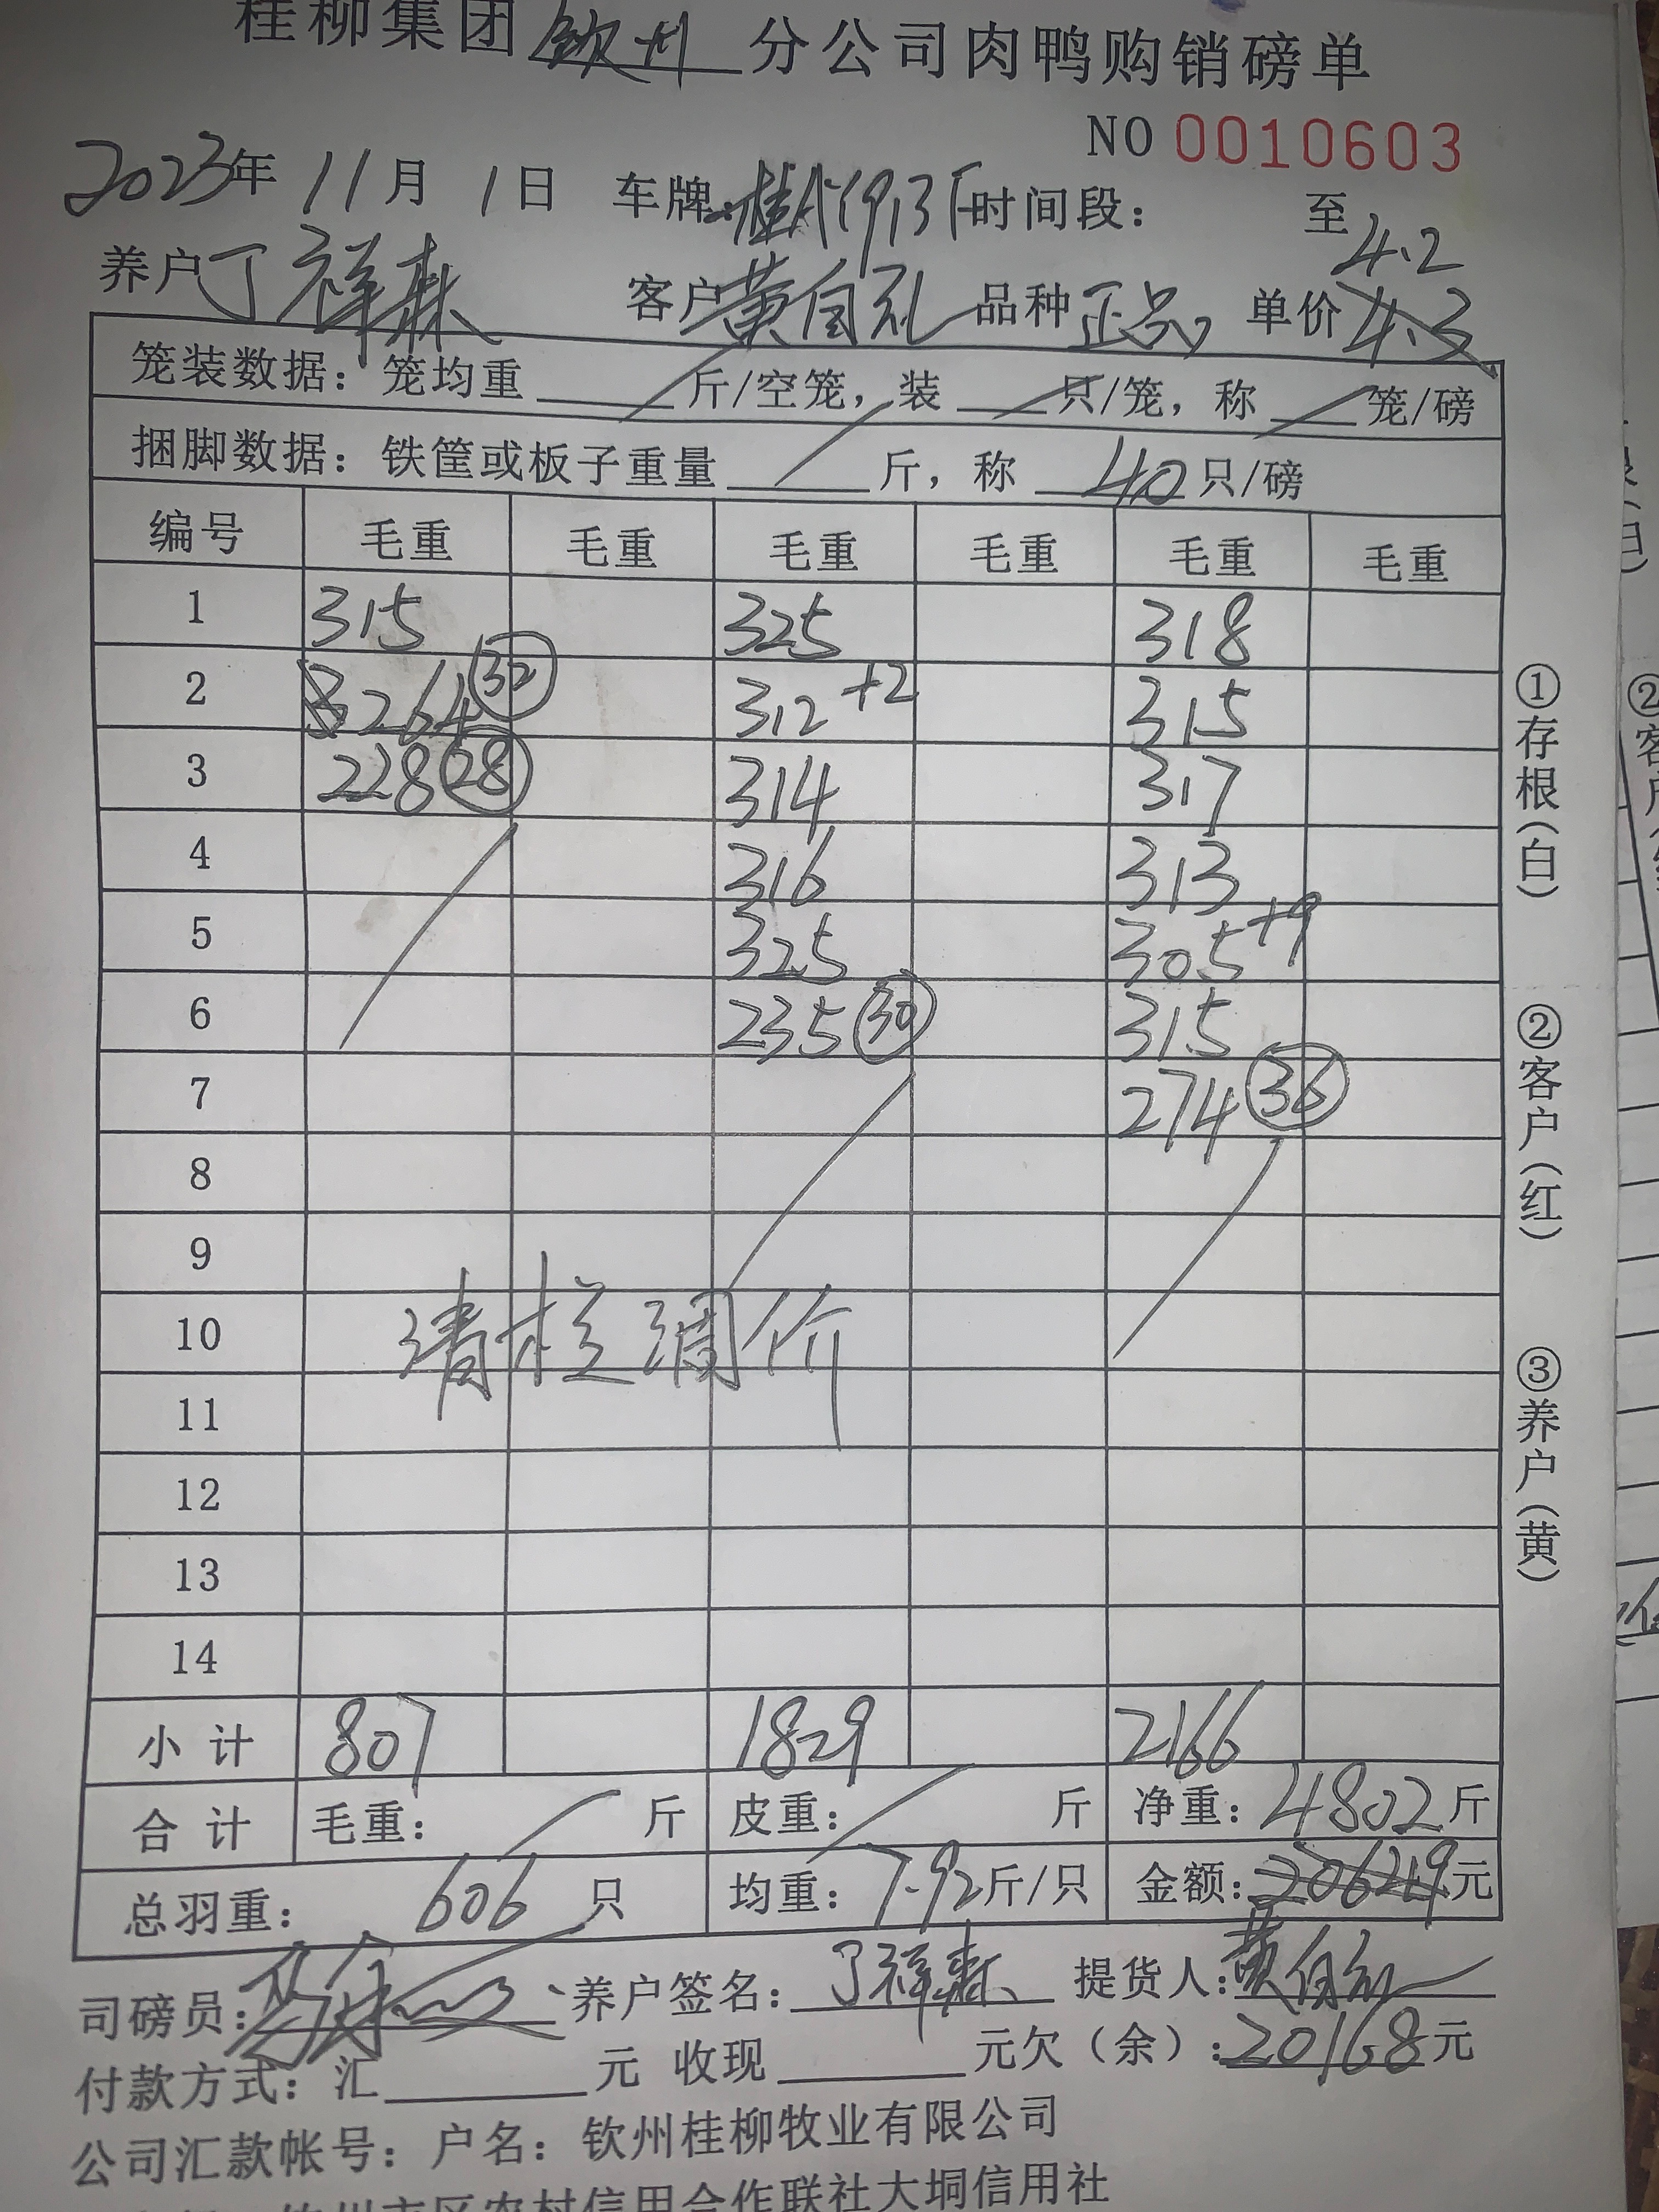 桂柳集团 钦州 分公司肉鸭购销磅单
NO 0010603
2023年 11月 1日 车牌: 时间段: 至
4.2
养户 丁祥森 客户 黄自礼 品种 正品 单价 4.3
笼装数据: 笼均重 斤/空笼, 装 只/笼, 称 笼/磅
捆脚数据: 铁筐或板子重量 斤, 称 40 只/磅
编号 毛重 毛重 毛重 毛重 毛重 毛重
1 315 325 318
2 264 32 312 +2 315
3 228 28 314 317
4 316 313
5 325 305 +9
6 235 30 315
7 274 36
8
9
10 请核调价
11
12
13
14
小计 807 1829 2166
合计 毛重: 斤 皮重: 斤 净重: 4802斤
总羽重: 606 只 均重: 7.92斤/只 金额: 元
司磅员: 养户签名: 丁祥森 提货人:
付款方式: 汇 元 收现 元欠(余): 20168元
公司汇款帐号: 户名: 钦州桂柳牧业有限公司
钦州市区农村信用合作联社大垌信用社
①存根(白)
②客户(红)
③养户(黄)